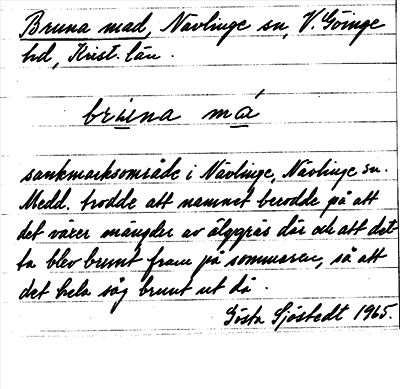 Bruna mad, Nävlinge sn, V. Göinge
hd, Krist. län.
bruna má
sankmarksområde i Nävlinge, Nävlinge sn.
Medd. trodde att namnet berodde på att
det växer mängder av älggräs där och att det-
ta blev brunt fram på sommaren, så att
det hela såg brunt ut då.
Gösta Sjöstedt 1965.